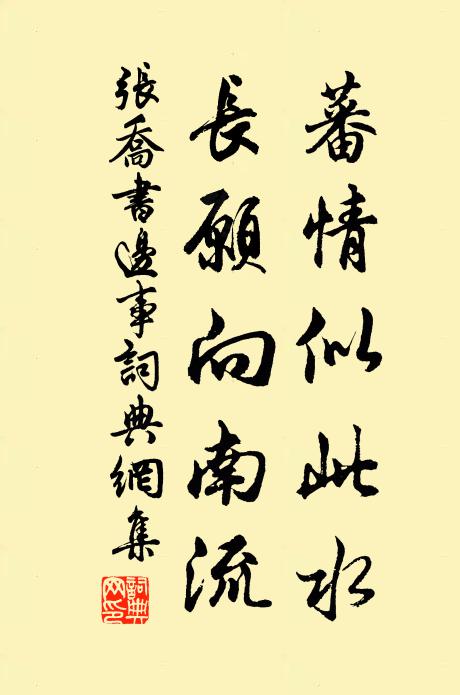 蕃情似此水
長願向南流
張喬書邊事詞典網集
詞典网印